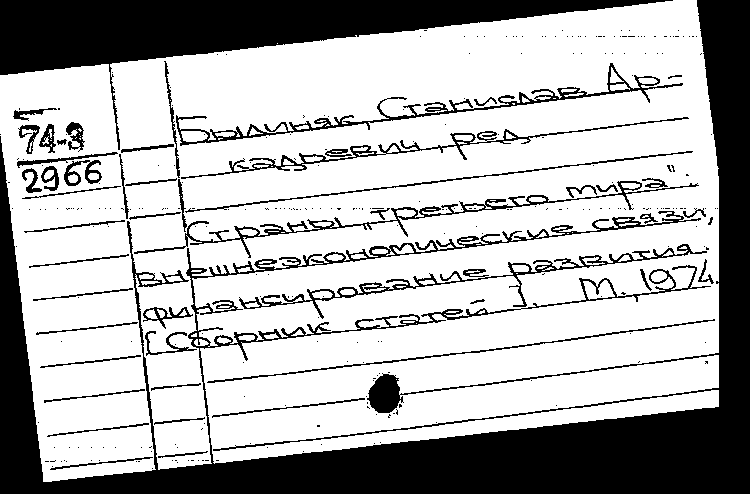 74-3
2966
Былиняк, Станислав Ар-
кадьевич, ред.
Страны „третьего мира":
внешнеэкономические связи,
финансирование развития.
[Сборник статей]. М., 1974.